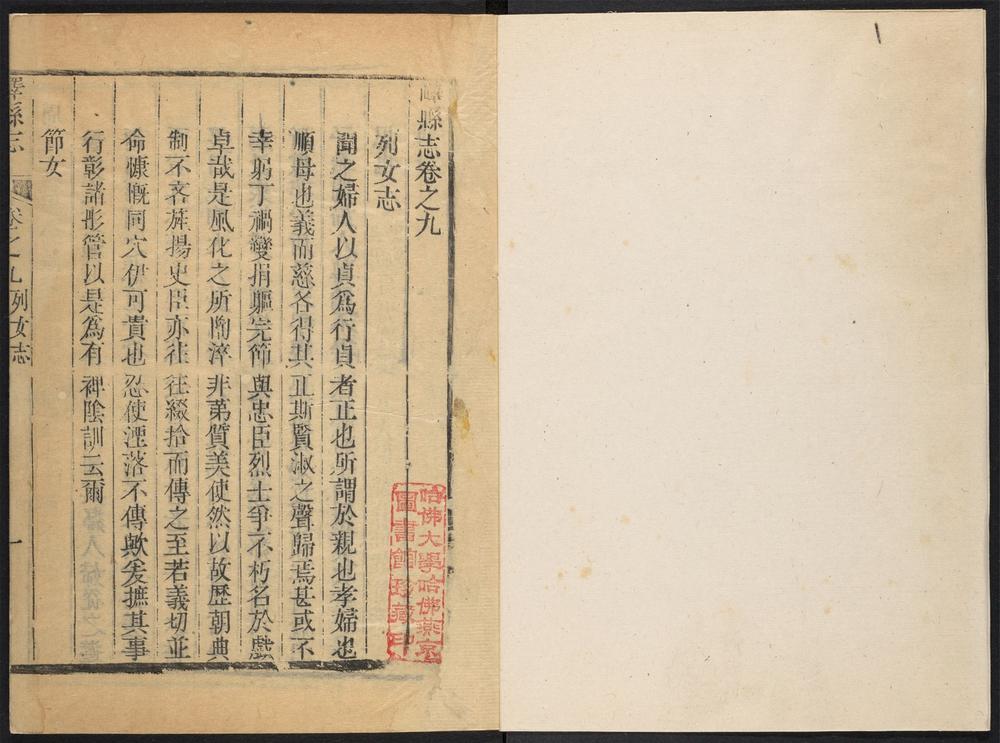 嶧縣志卷之九
列女志
聞之婦人以貞爲行貞者正也所謂於親也孝婦也
順母也義而慈各得其正斯賢淑之聲歸焉甚或不
幸躬丁禍變捐軀完節與忠臣烈士爭不朽名於戲
卓哉是風化之所陶淬非第質美使然以故歷朝典
制不吝旌揚史臣亦往往綴拾而傳之至若義切並
命慷慨同穴伊可貴也忍使湮落不傳歟爰摭其事
行彰諸彤管以是爲有裨陰訓云爾
節女
嶧縣志 卷之九 列女志 一
哈佛大學哈佛燕京
圖書館珍藏印